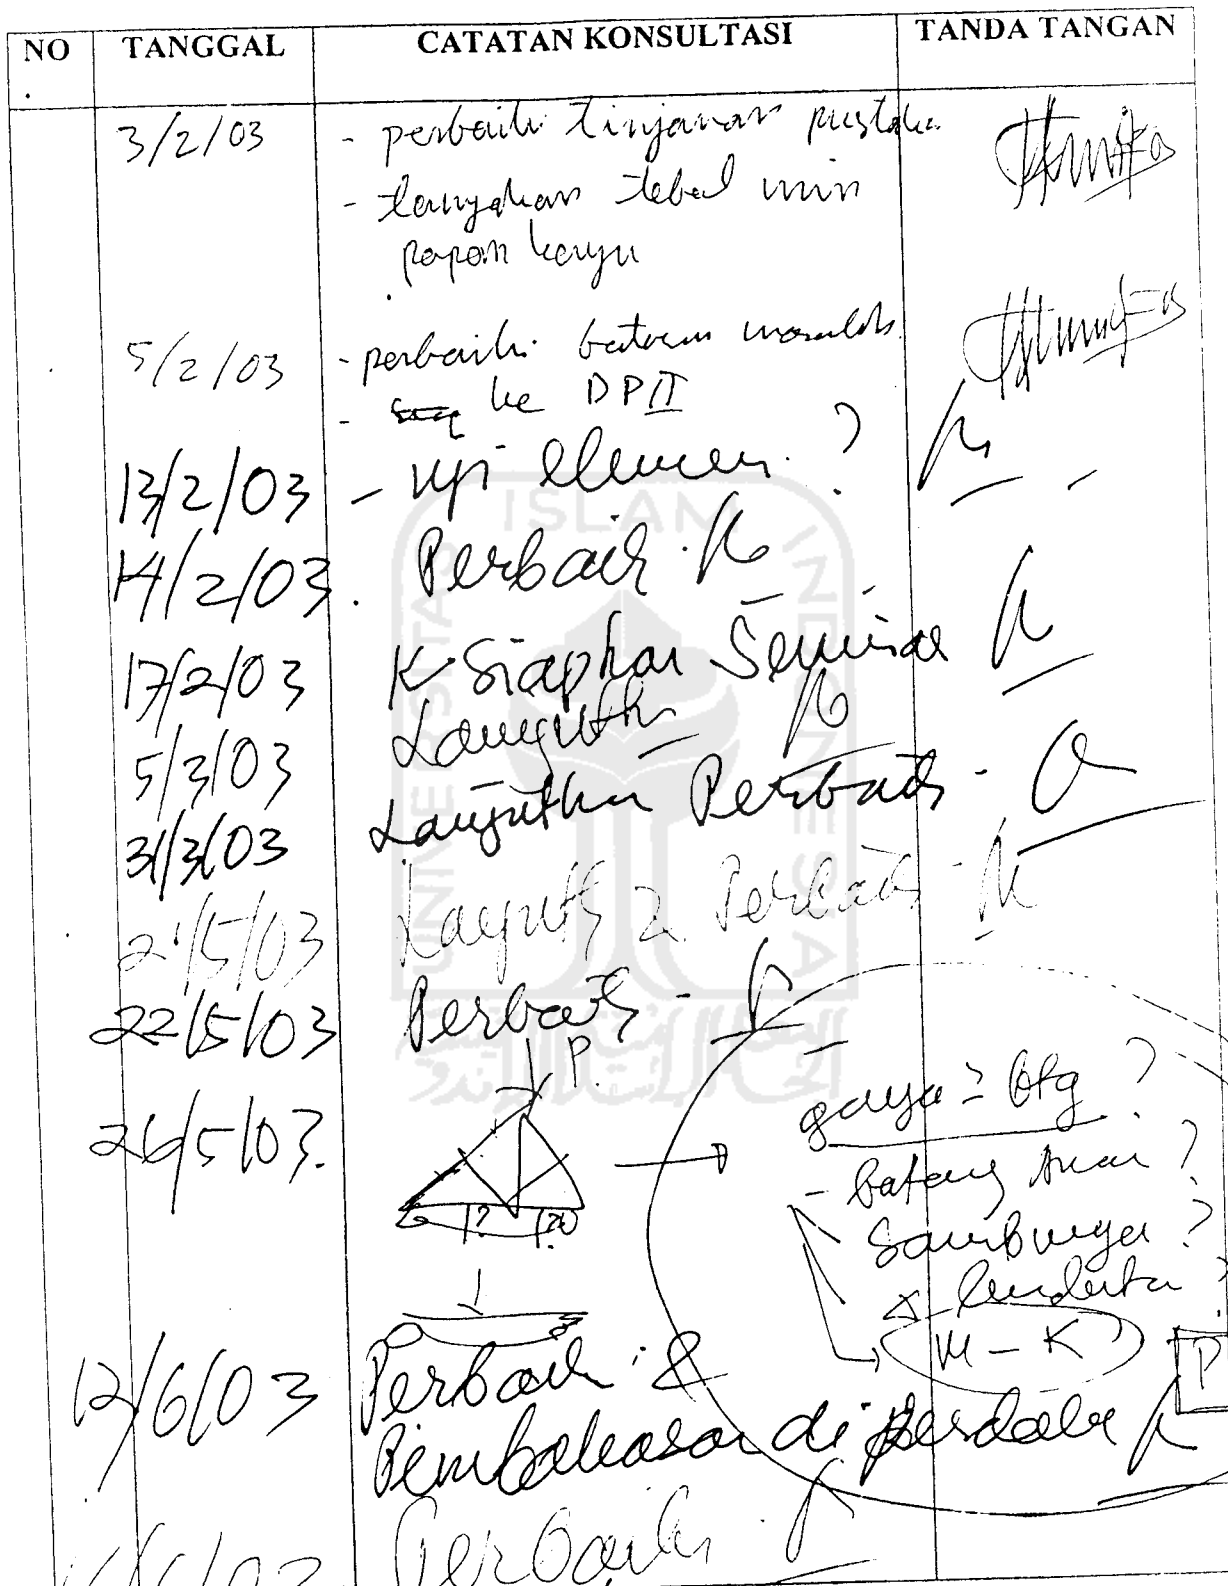 NO. TANGGAL CATATAN KONSULTASI TANDA TANGAN
3/2/03 - perbaiki tinjauan pustaka
- tanyakan tebal min
papan kayu
5/2/03 - perbaiki batasan masalah
- ke DP II
13/2/03 - uji elemen ?
14/2/03 . Perbaiki
17/2/03 Siapkan Seminar
5/3/03 Lanjutkan
31/3/03 Lanjutkan Perbaiki -
2 /5/03 Lanjutkan 2 Perbaiki -
22/5/03 Perbaiki -
P.
26/5/03. gaya 2 btg ?
- batang ?
? 20
Sambungan ?
lendutan ?
M - K
P
12/6/03 Perbaiki &
Pembahasan di
Perbaiki
UNIVERSITAS ISLAM INDONESIA